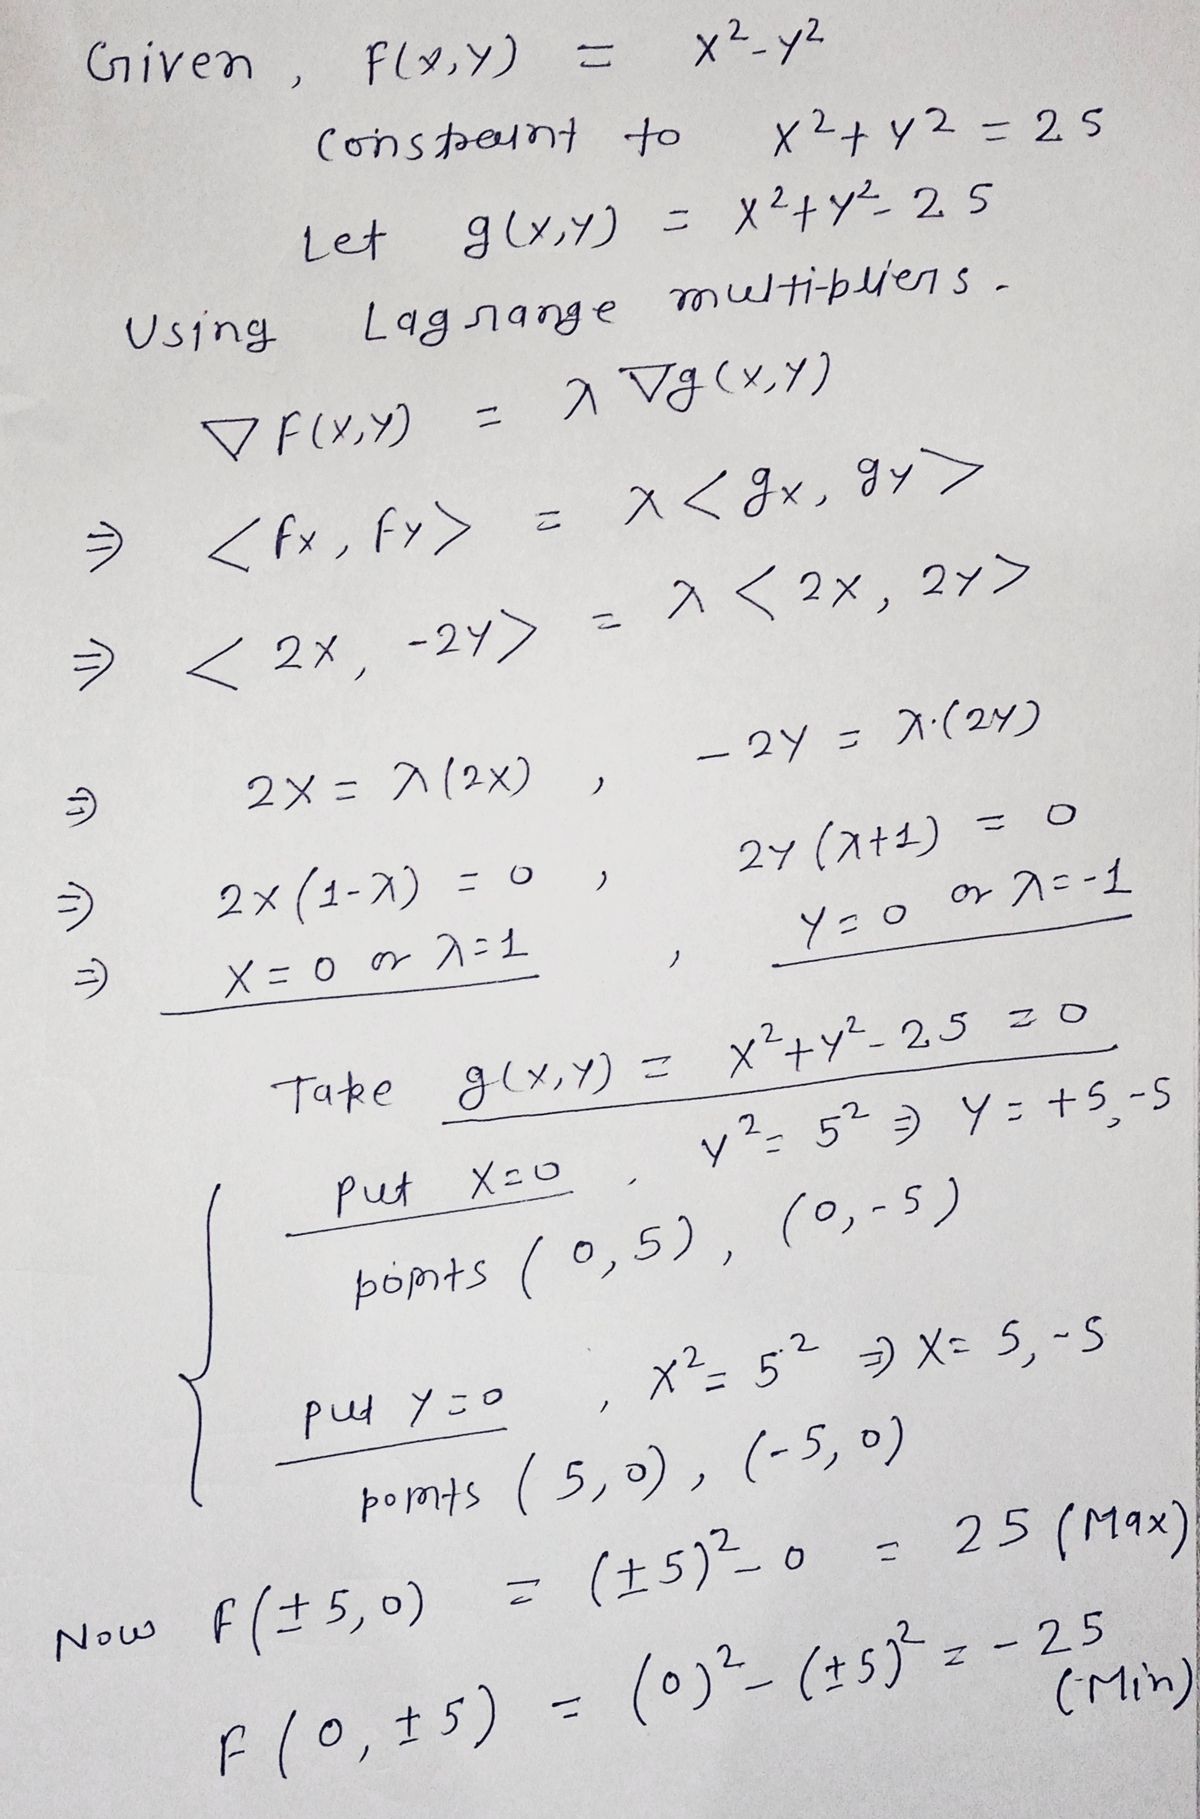 Given, F(x,y) = x²-y²
constraint to x²+y² = 25
Let g(x,y) = x²+y²-25
Using Lagrange multipliers.
∇F(x,y) = λ∇g(x,y)
⇒ <fx, fy> = λ<gx, gy>
⇒ <2x, -2y> = λ<2x, 2y>
⇒ 2x = λ(2x) , -2y = λ·(2y)
⇒ 2x(1-λ) = 0 , 2y(λ+1) = 0
⇒ x=0 or λ=1 , y=0 or λ=-1
Take g(x,y) = x²+y²-25 = 0
Put x=0 , y²=5² ⇒ y=+5,-5
points (0,5), (0,-5)
Put y=0 , x²=5² ⇒ x=5,-5
points (5,0), (-5,0)
Now F(±5,0) = (±5)²-0 = 25 (Max)
F(0,±5) = (0)²-(±5)² = -25
(Min)